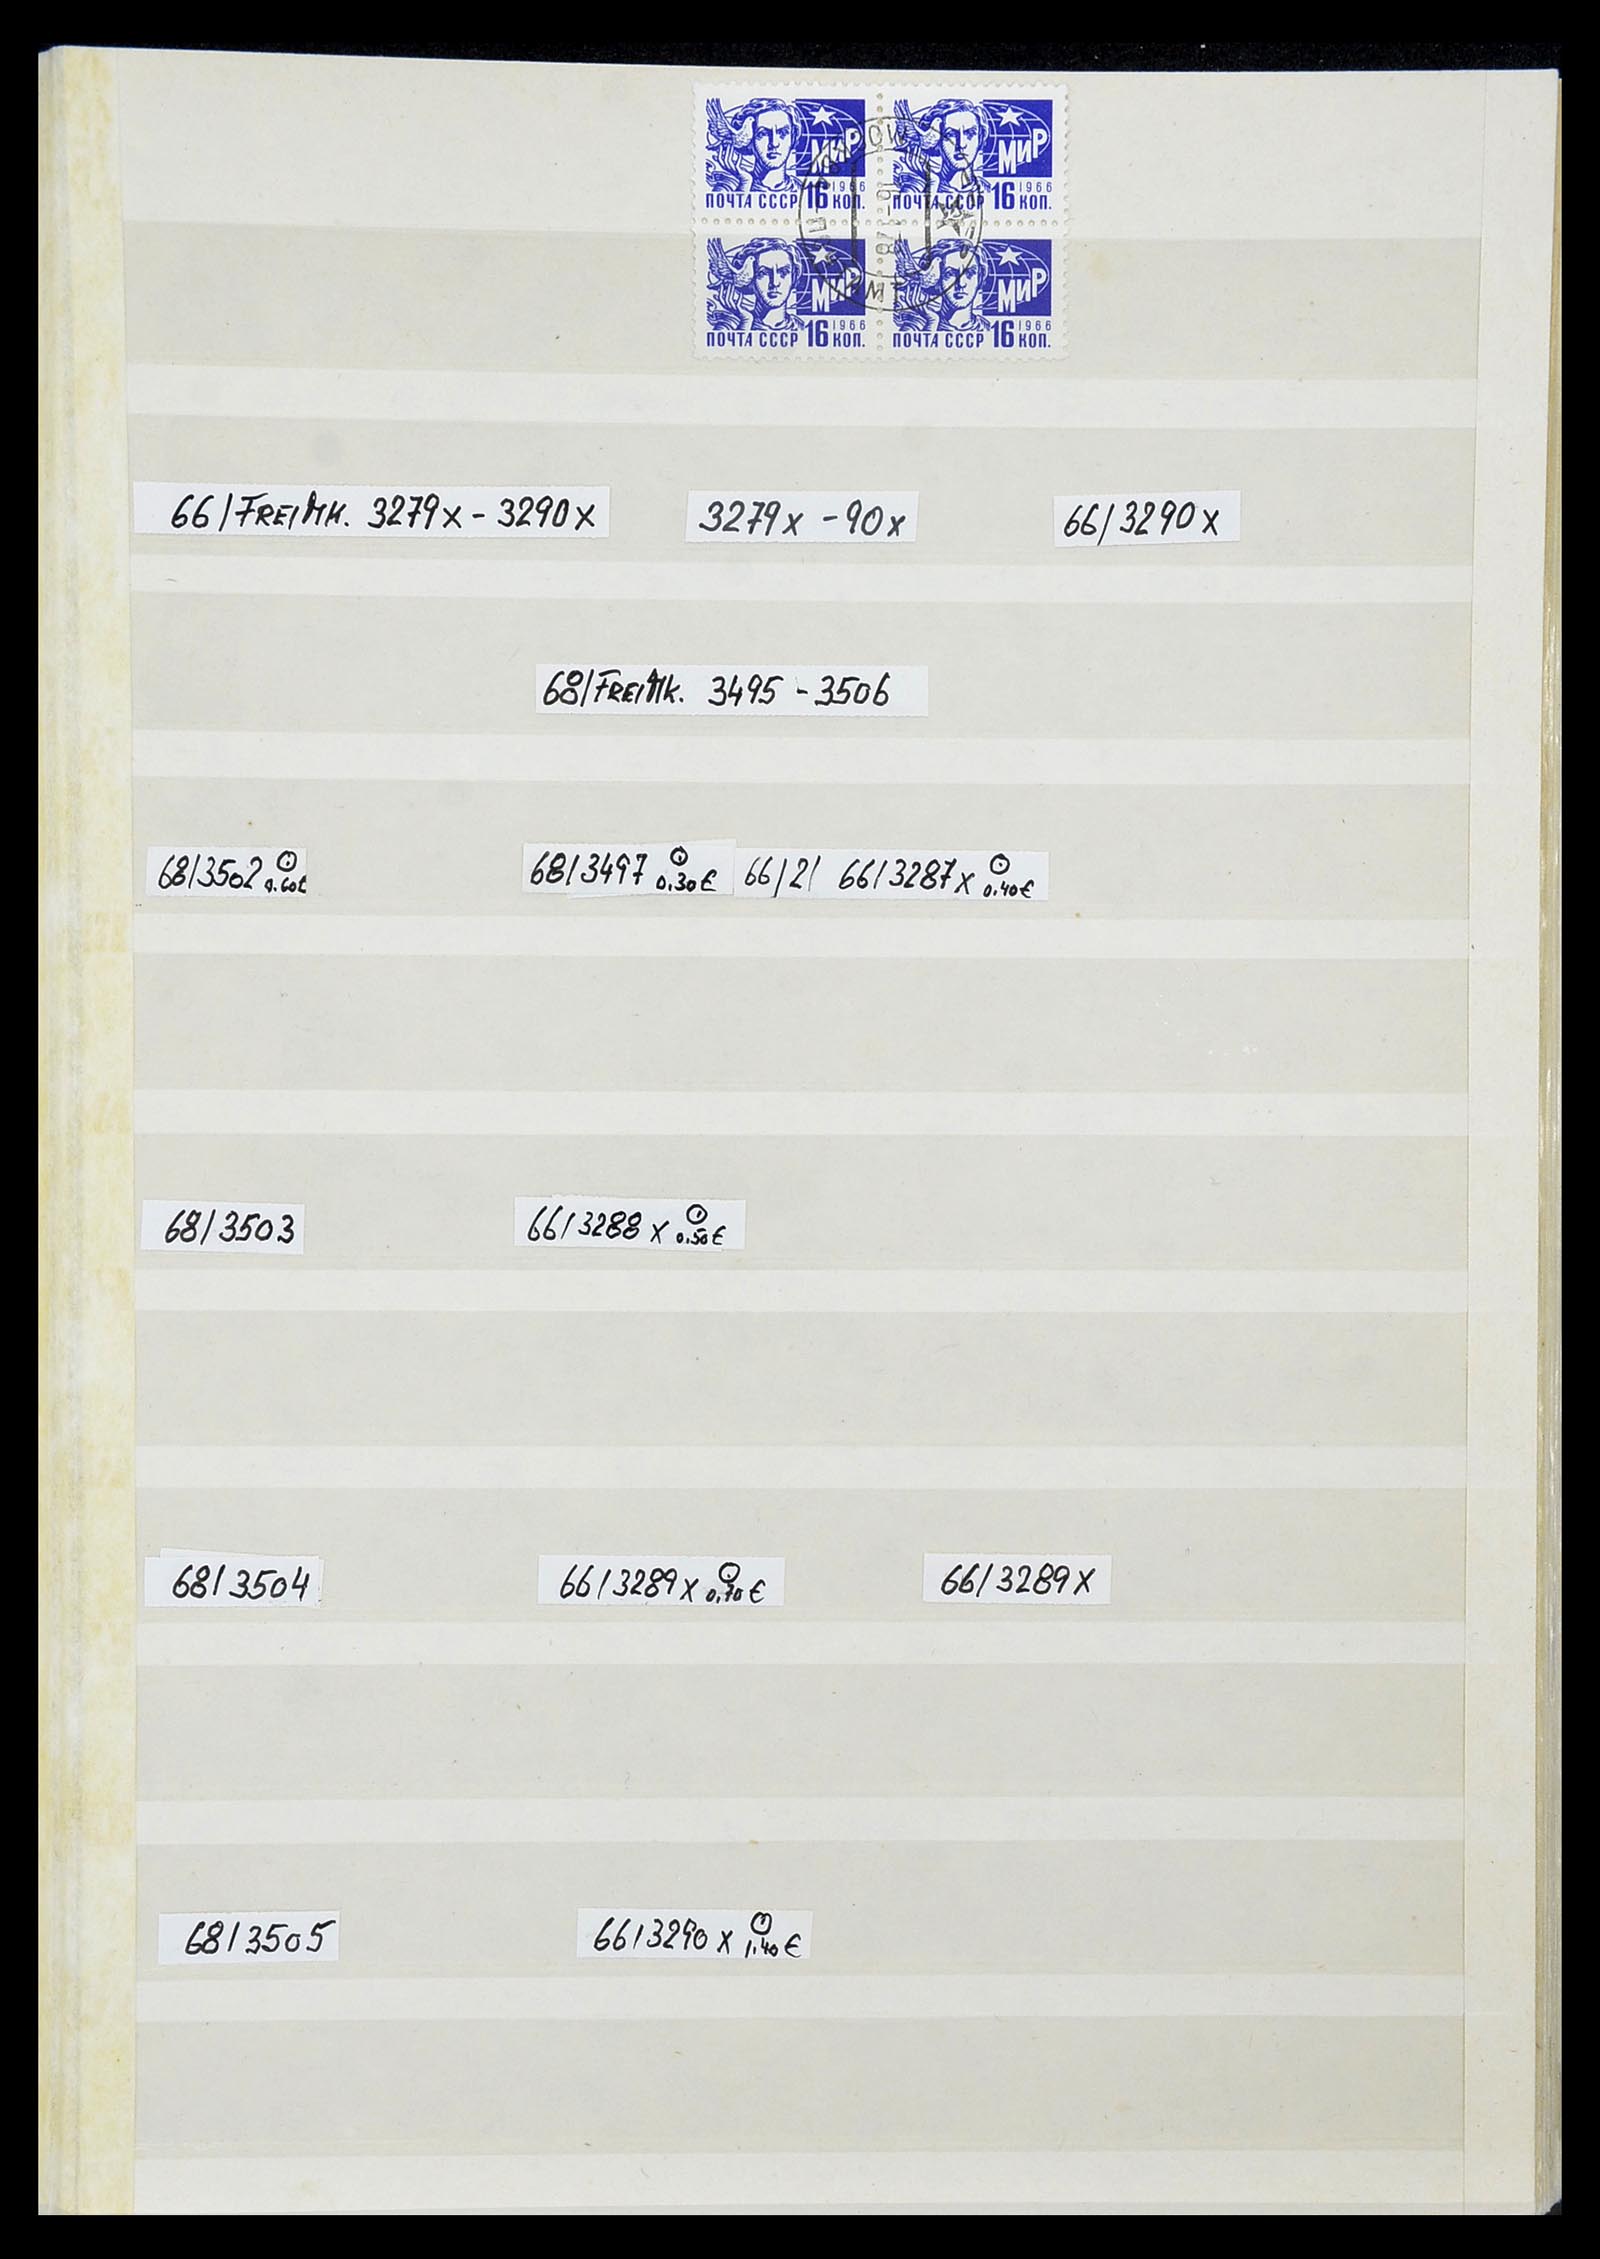 МИР МИР
1966 1966
ПОЧТА СССР 16 КОП. ПОЧТА СССР 16 КОП.
МИР МИР
1966 1966
ПОЧТА СССР 16 КОП. ПОЧТА СССР 16 КОП.
66/FREIMK. 3279x - 3290x 3279x - 90x 66/3290x
68/FREIMK. 3495 - 3506
68/3502 0.60€ 68/3497 0.30€ 66/2/ 66/3287x 0.40€
68/3503 66/3288x 0.50€
68/3504 66/3289x 0.70€ 66/3289x
68/3505 66/3290x 1.40€